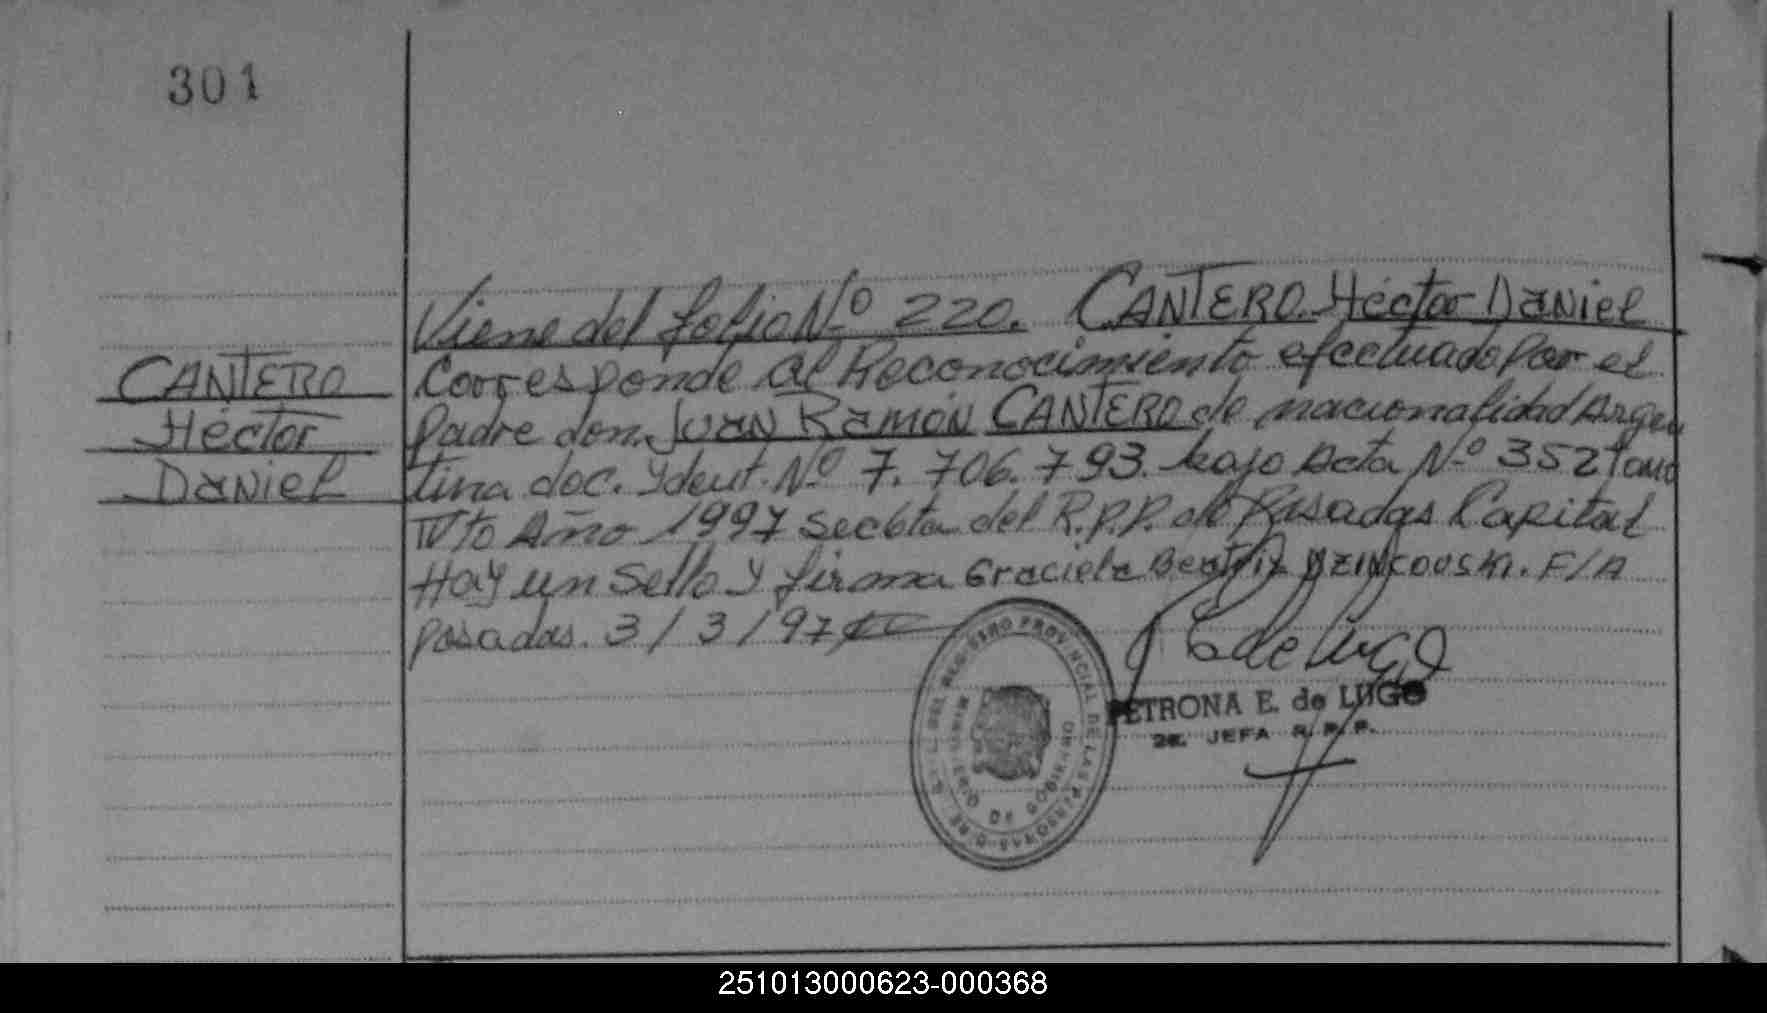 301
CANTERO
Héctor
Daniel
Viene del folio Nº 220. CANTERO Héctor Daniel
Corresponde al Reconocimiento efectuado por el
padre don. Juan Ramón CANTERO de nacionalidad Argen
tina doc. Ydent. Nº 7.706.793. bajo Acta Nº 352 Tomo
IVto Año 1997 del R.P.P. de Posadas Capital
Hay un Sello y firma Graciela Beatriz F/A
posadas. 3/3/97
REGISTRO PROVINCIAL DE LAS PERSONAS
MINISTERIO DE GOBIERNO
PETRONA E. de LUGO
2a. JEFA R.P.P.
251013000623-000368